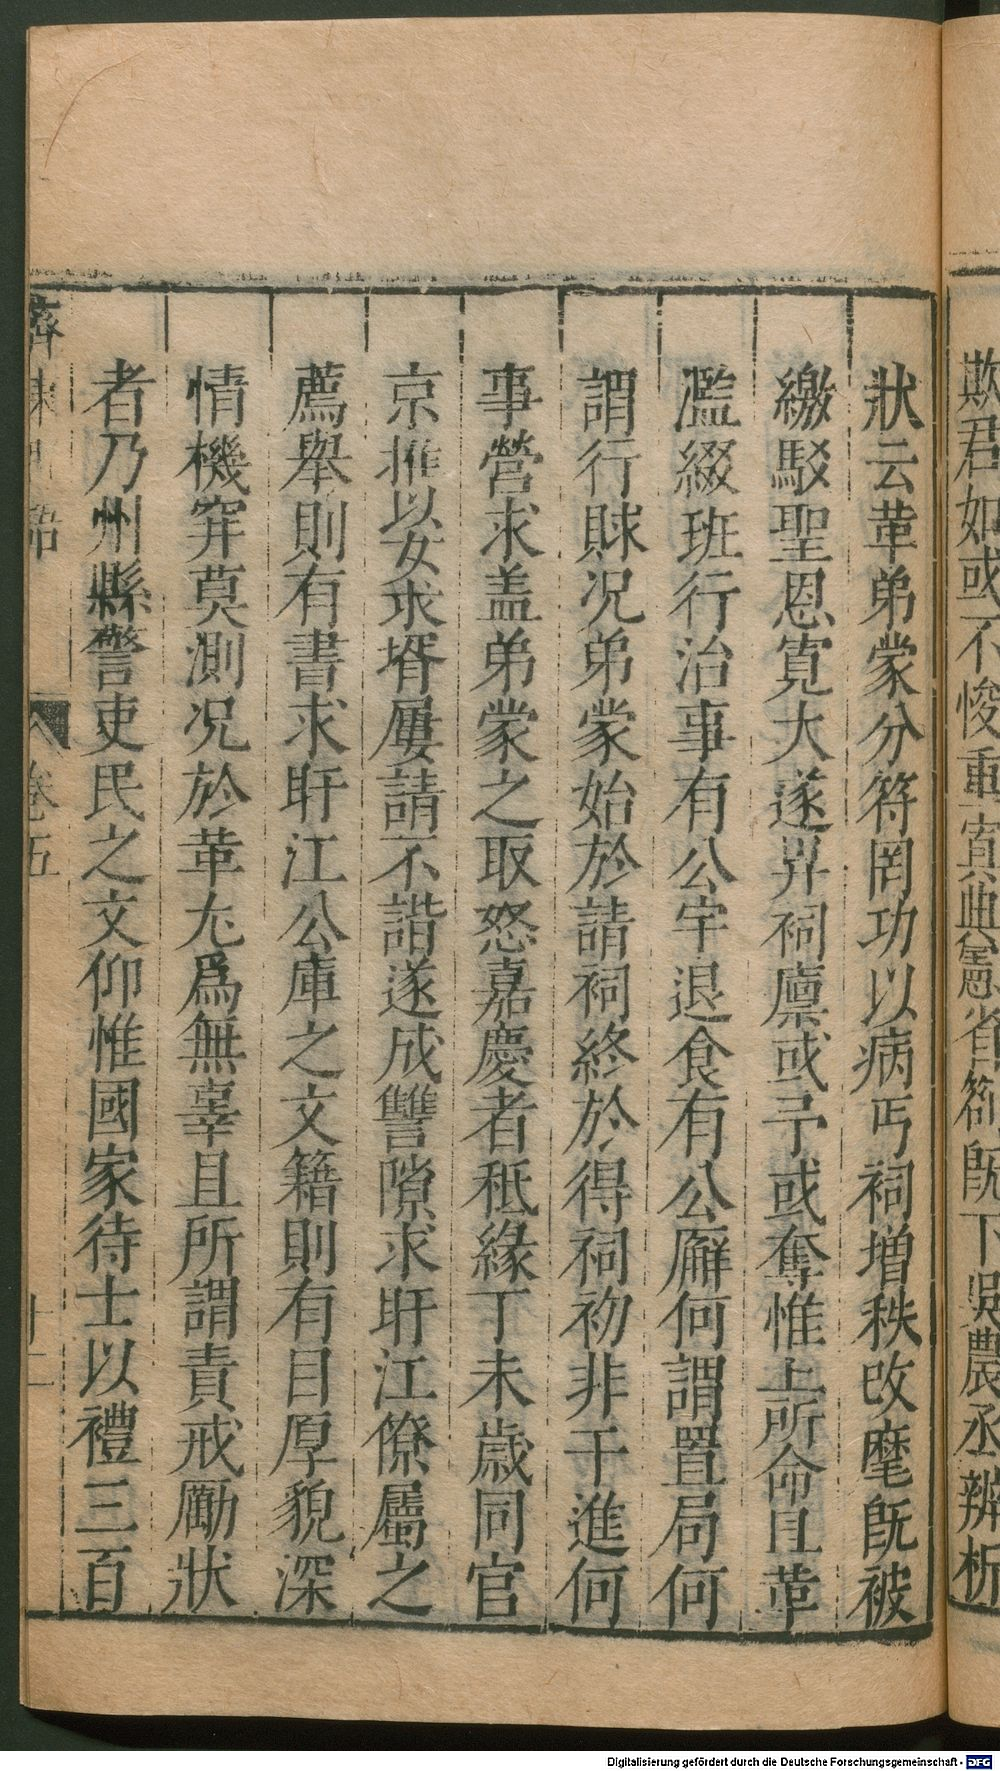 欺君如或不悛重寘典憲省劄既下吳農丞辨析
狀云革弟蒙分符罔功以病丐祠增秩改麾既被
繳駁聖恩寬大遂畀祠廪或予或奪惟上所命且革
濫綴班行治事有公宇退食有公廨何謂置局何
謂行賕况弟蒙始於請祠終於得祠初非干進何
事營求盖弟蒙之取怒嘉慶者秪緣丁未歲同官
京摧以女求壻屢請不諧遂成讐隙求盱江僚屬之
薦舉則有書求盱江公庫之文籍則有目厚貌深
情機穽莫測况於革尢爲無辜且所謂責戒勵狀
者乃州縣警吏民之文仰惟國家待士以禮三百
齊東野語
卷五
十二
Digitalisierung gefördert durch die Deutsche Forschungsgemeinschaft - DFG